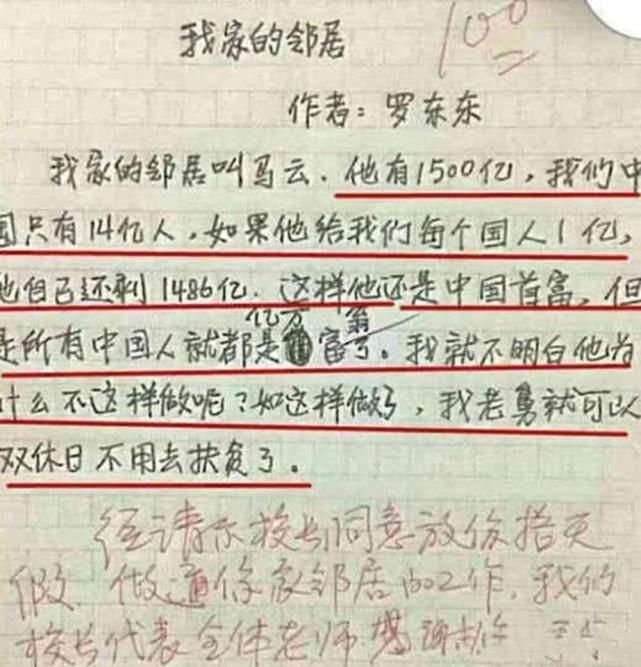 我家的邻居
100
作者：罗东东
我家的邻居叫马云．他有1500亿，我们中
国只有14亿人．如果他给我们每个国人1亿，
他自己还剩1486亿．这样他还是中国首富，但
亿万 翁
是所有中国人就都是富了。我就不明白他为
什么不这样做呢？如这样做了，我老舅就可以
双休日不用去扶贫了。
经请示校长同意放你搭天
假．做通你家邻居的工作．我们
校长代表全体老师